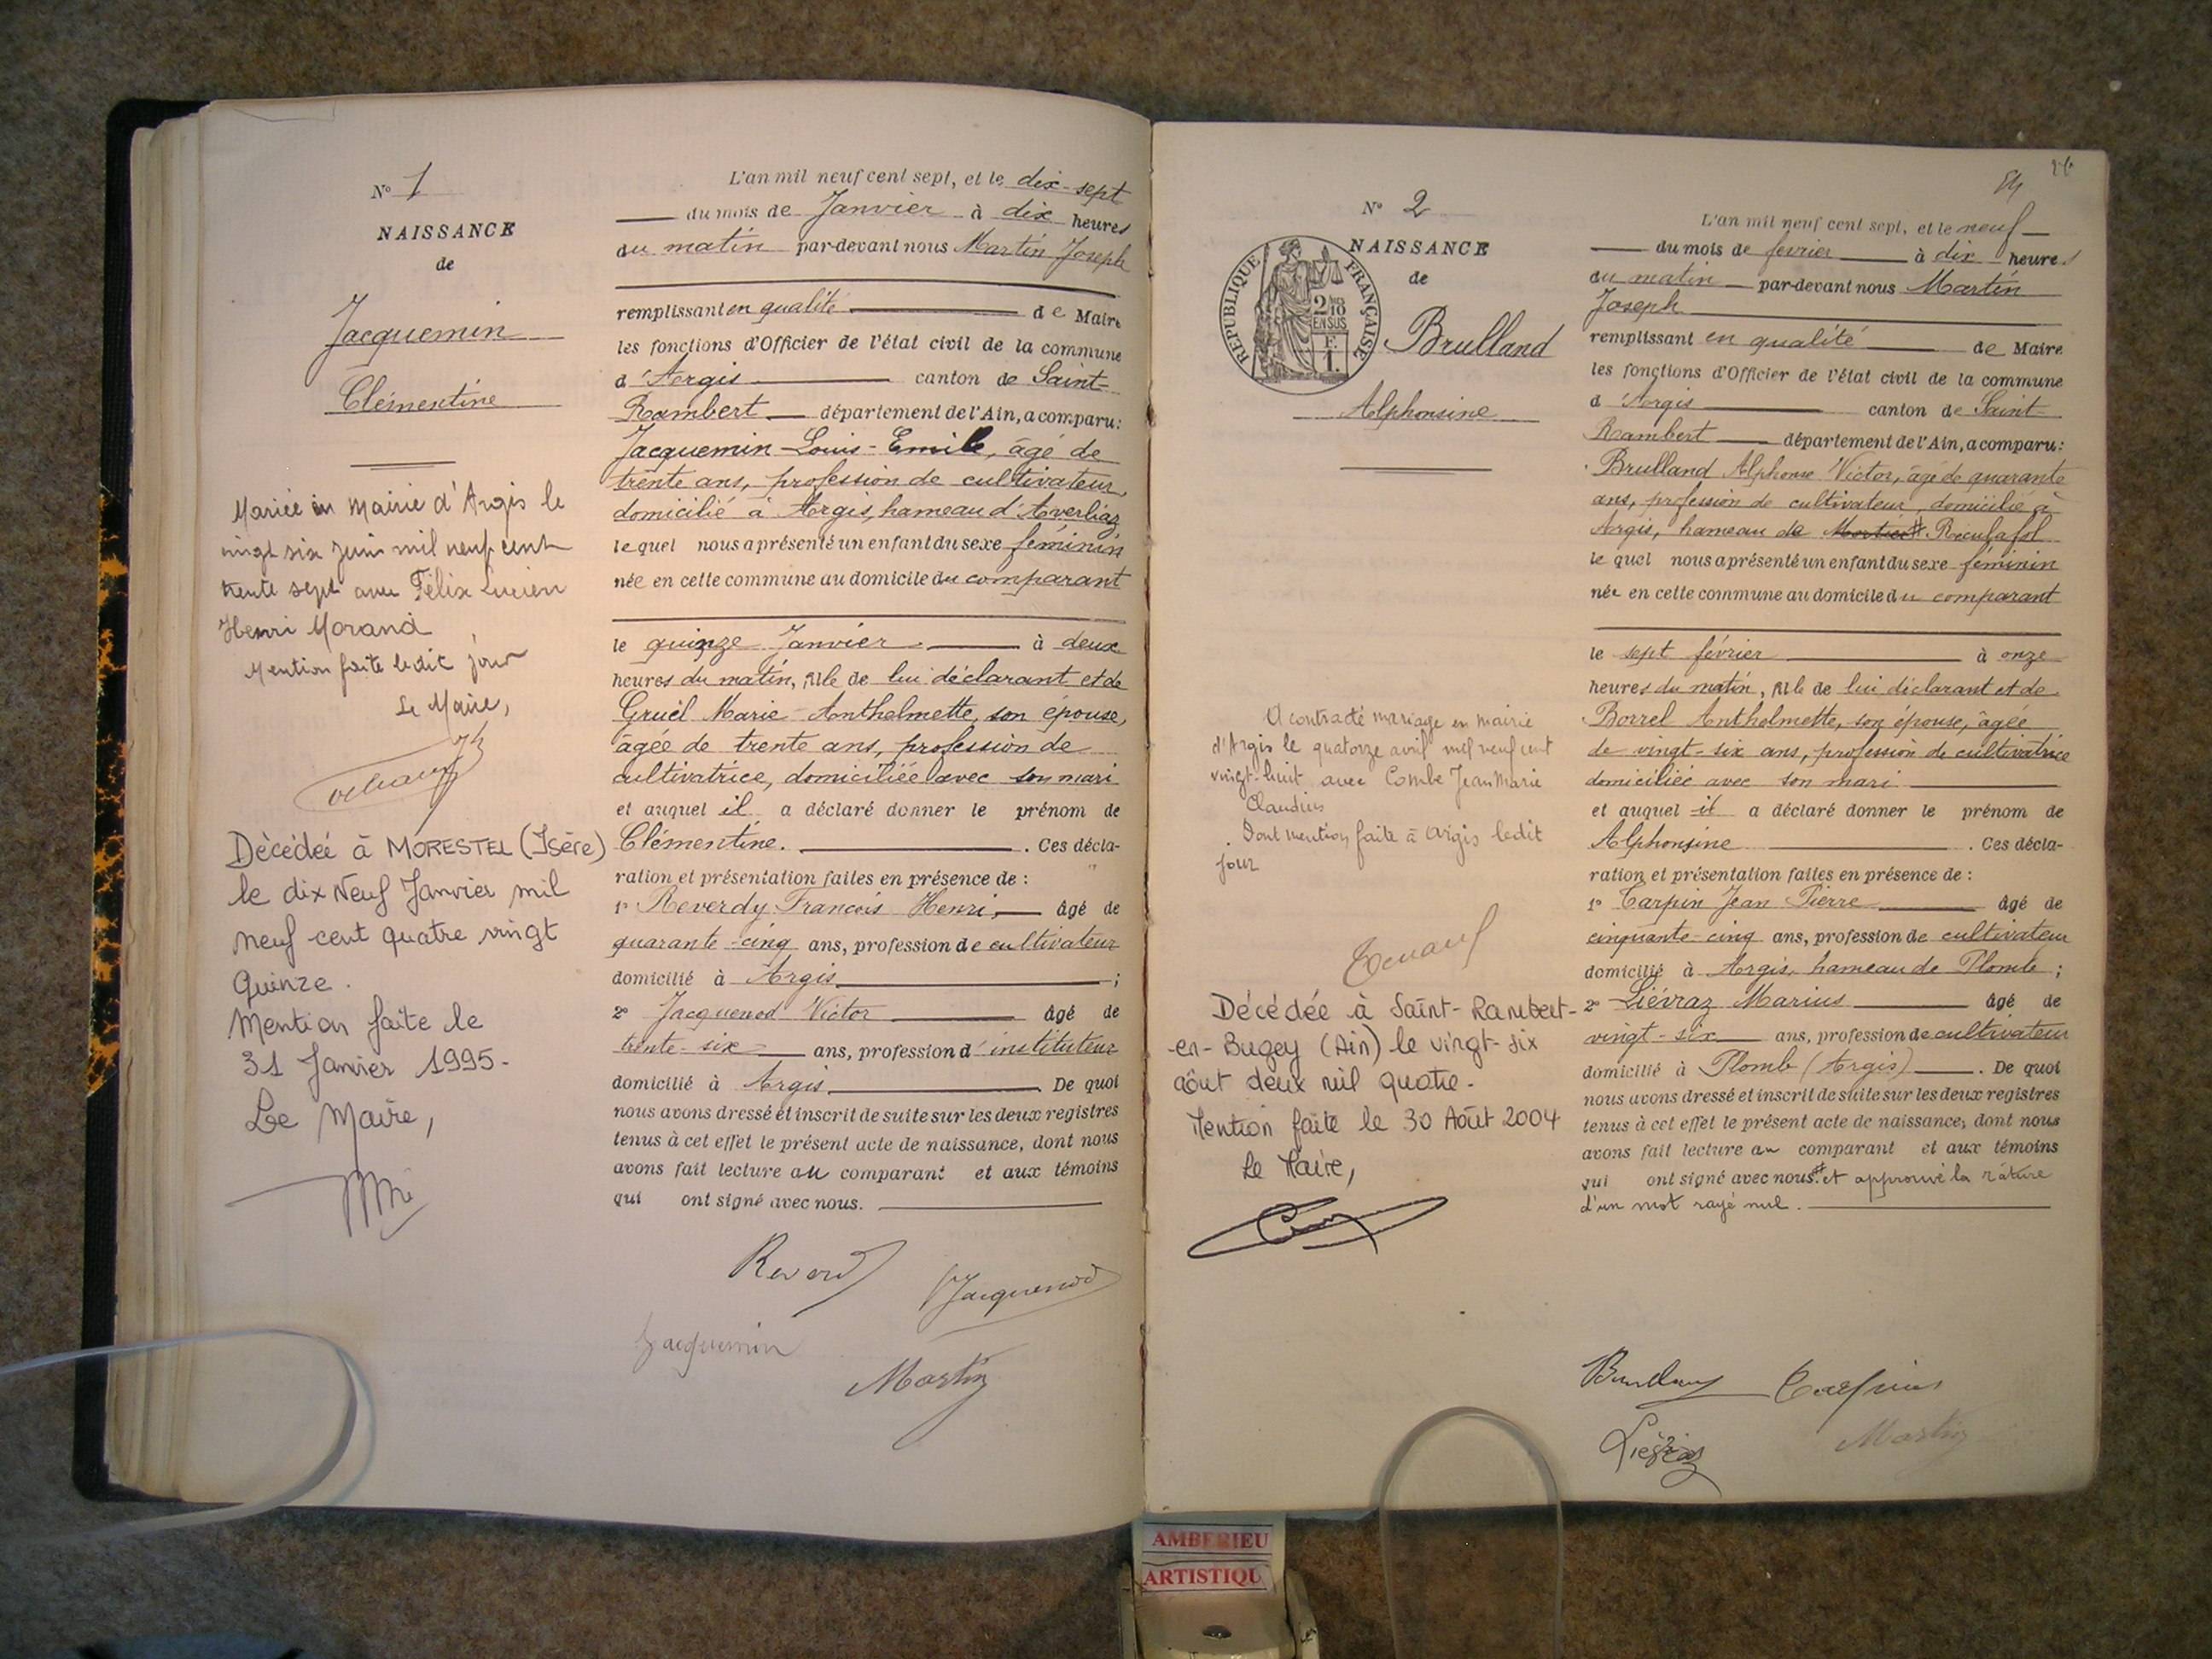 N° 1
NAISSANCE
de
Jacquemin
Clémentine
Mariée en Mairie d'Argis le
vingt six juin mil neuf cent
trente sept avec Félix Lucien
Henri Morand
Mention faite ledit jour
Le Maire,
Décédée à MORESTEL (Isère)
le dix Neuf Janvier mil
neuf cent quatre vingt
Quinze.
Mention faite le
31 Janvier 1995-
Le Maire,
L'an mil neuf cent sept, et le dix-sept
du mois de Janvier à dix heures
du matin par-devant nous Martin Joseph
remplissant en qualité de Maire
les fonctions d'Officier de l'état civil de la commune
d'Argis canton de Saint-
Rambert département de l'Ain, a comparu:
Jacquemin Louis-Emile, âgé de
trente ans, profession de cultivateur,
domicilié à Argis, hameau d'Averliaz
lequel nous a présenté un enfant du sexe féminin
née en cette commune au domicile du comparant
le quinze Janvier à deux
heures du matin, fille de lui déclarant et de
Gruel Marie-Anthelmette, son épouse,
âgée de trente ans, profession de
cultivatrice, domiciliée avec son mari
et auquel il a déclaré donner le prénom de
Clémentine. . Ces décla-
ration et présentation faites en présence de :
1° Reverdy François Henri, âgé de
quarante-cinq ans, profession de cultivateur
domicilié à Argis ;
2° Jacquenod Victor âgé de
trente-six ans, profession d'instituteur
domicilié à Argis De quoi
nous avons dressé et inscrit de suite sur les deux registres
tenus à cet effet le présent acte de naissance, dont nous
avons fait lecture au comparant et aux témoins
qui ont signé avec nous.
Reverdy Jacquenod
Jacquemin
Martin
N° 2
NAISSANCE
de
Brulland
Alphonsine
REPUBLIQUE FRANÇAISE
2/10
EN SUS
F.
1.
A contracté mariage en mairie
d'Argis le quatorze avril mil neuf cent
vingt-huit avec Combe Jean Marie
Claudius
Dont mention faite à Argis ledit
jour
Décédée à Saint-Rambert-
-en-Bugey (Ain) le vingt-six
aôut deux mil quatre-
Mention faite le 30 Août 2004
Le Maire,
L'an mil neuf cent sept, et le neuf
du mois de février à dix heures
du matin par-devant nous Martin
Joseph
remplissant en qualité de Maire
les fonctions d'Officier de l'état civil de la commune
d'Argis canton de Saint-
Rambert département de l'Ain, a comparu:
Brulland Alphonse Victor, âgé de quarante
ans, profession de cultivateur, domicilié à
Argis, hameau de # Reculafol
lequel nous a présenté un enfant du sexe féminin
née en cette commune au domicile du comparant
le sept février à onze
heures du matin, fille de lui déclarant et de
Borrel Anthelmette, son épouse, âgée
de vingt-six ans, profession de cultivatrice
domiciliée avec son mari
et auquel il a déclaré donner le prénom de
Alphonsine . Ces décla-
ration et présentation faites en présence de :
1° Carpin Jean Pierre âgé de
cinquante-cinq ans, profession de cultivateur
domicilié à Argis, hameau de Plomb ;
2° Liévraz Marius âgé de
vingt-six ans, profession de cultivateur
domicilié à Plomb (Argis) . De quoi
nous avons dressé et inscrit de suite sur les deux registres
tenus à cet effet le présent acte de naissance, dont nous
avons fait lecture au comparant et aux témoins
qui ont signé avec nous # et approuvé la râture
d'un mot rayé nul.
Martin
AMBERIEU
ARTISTIQU